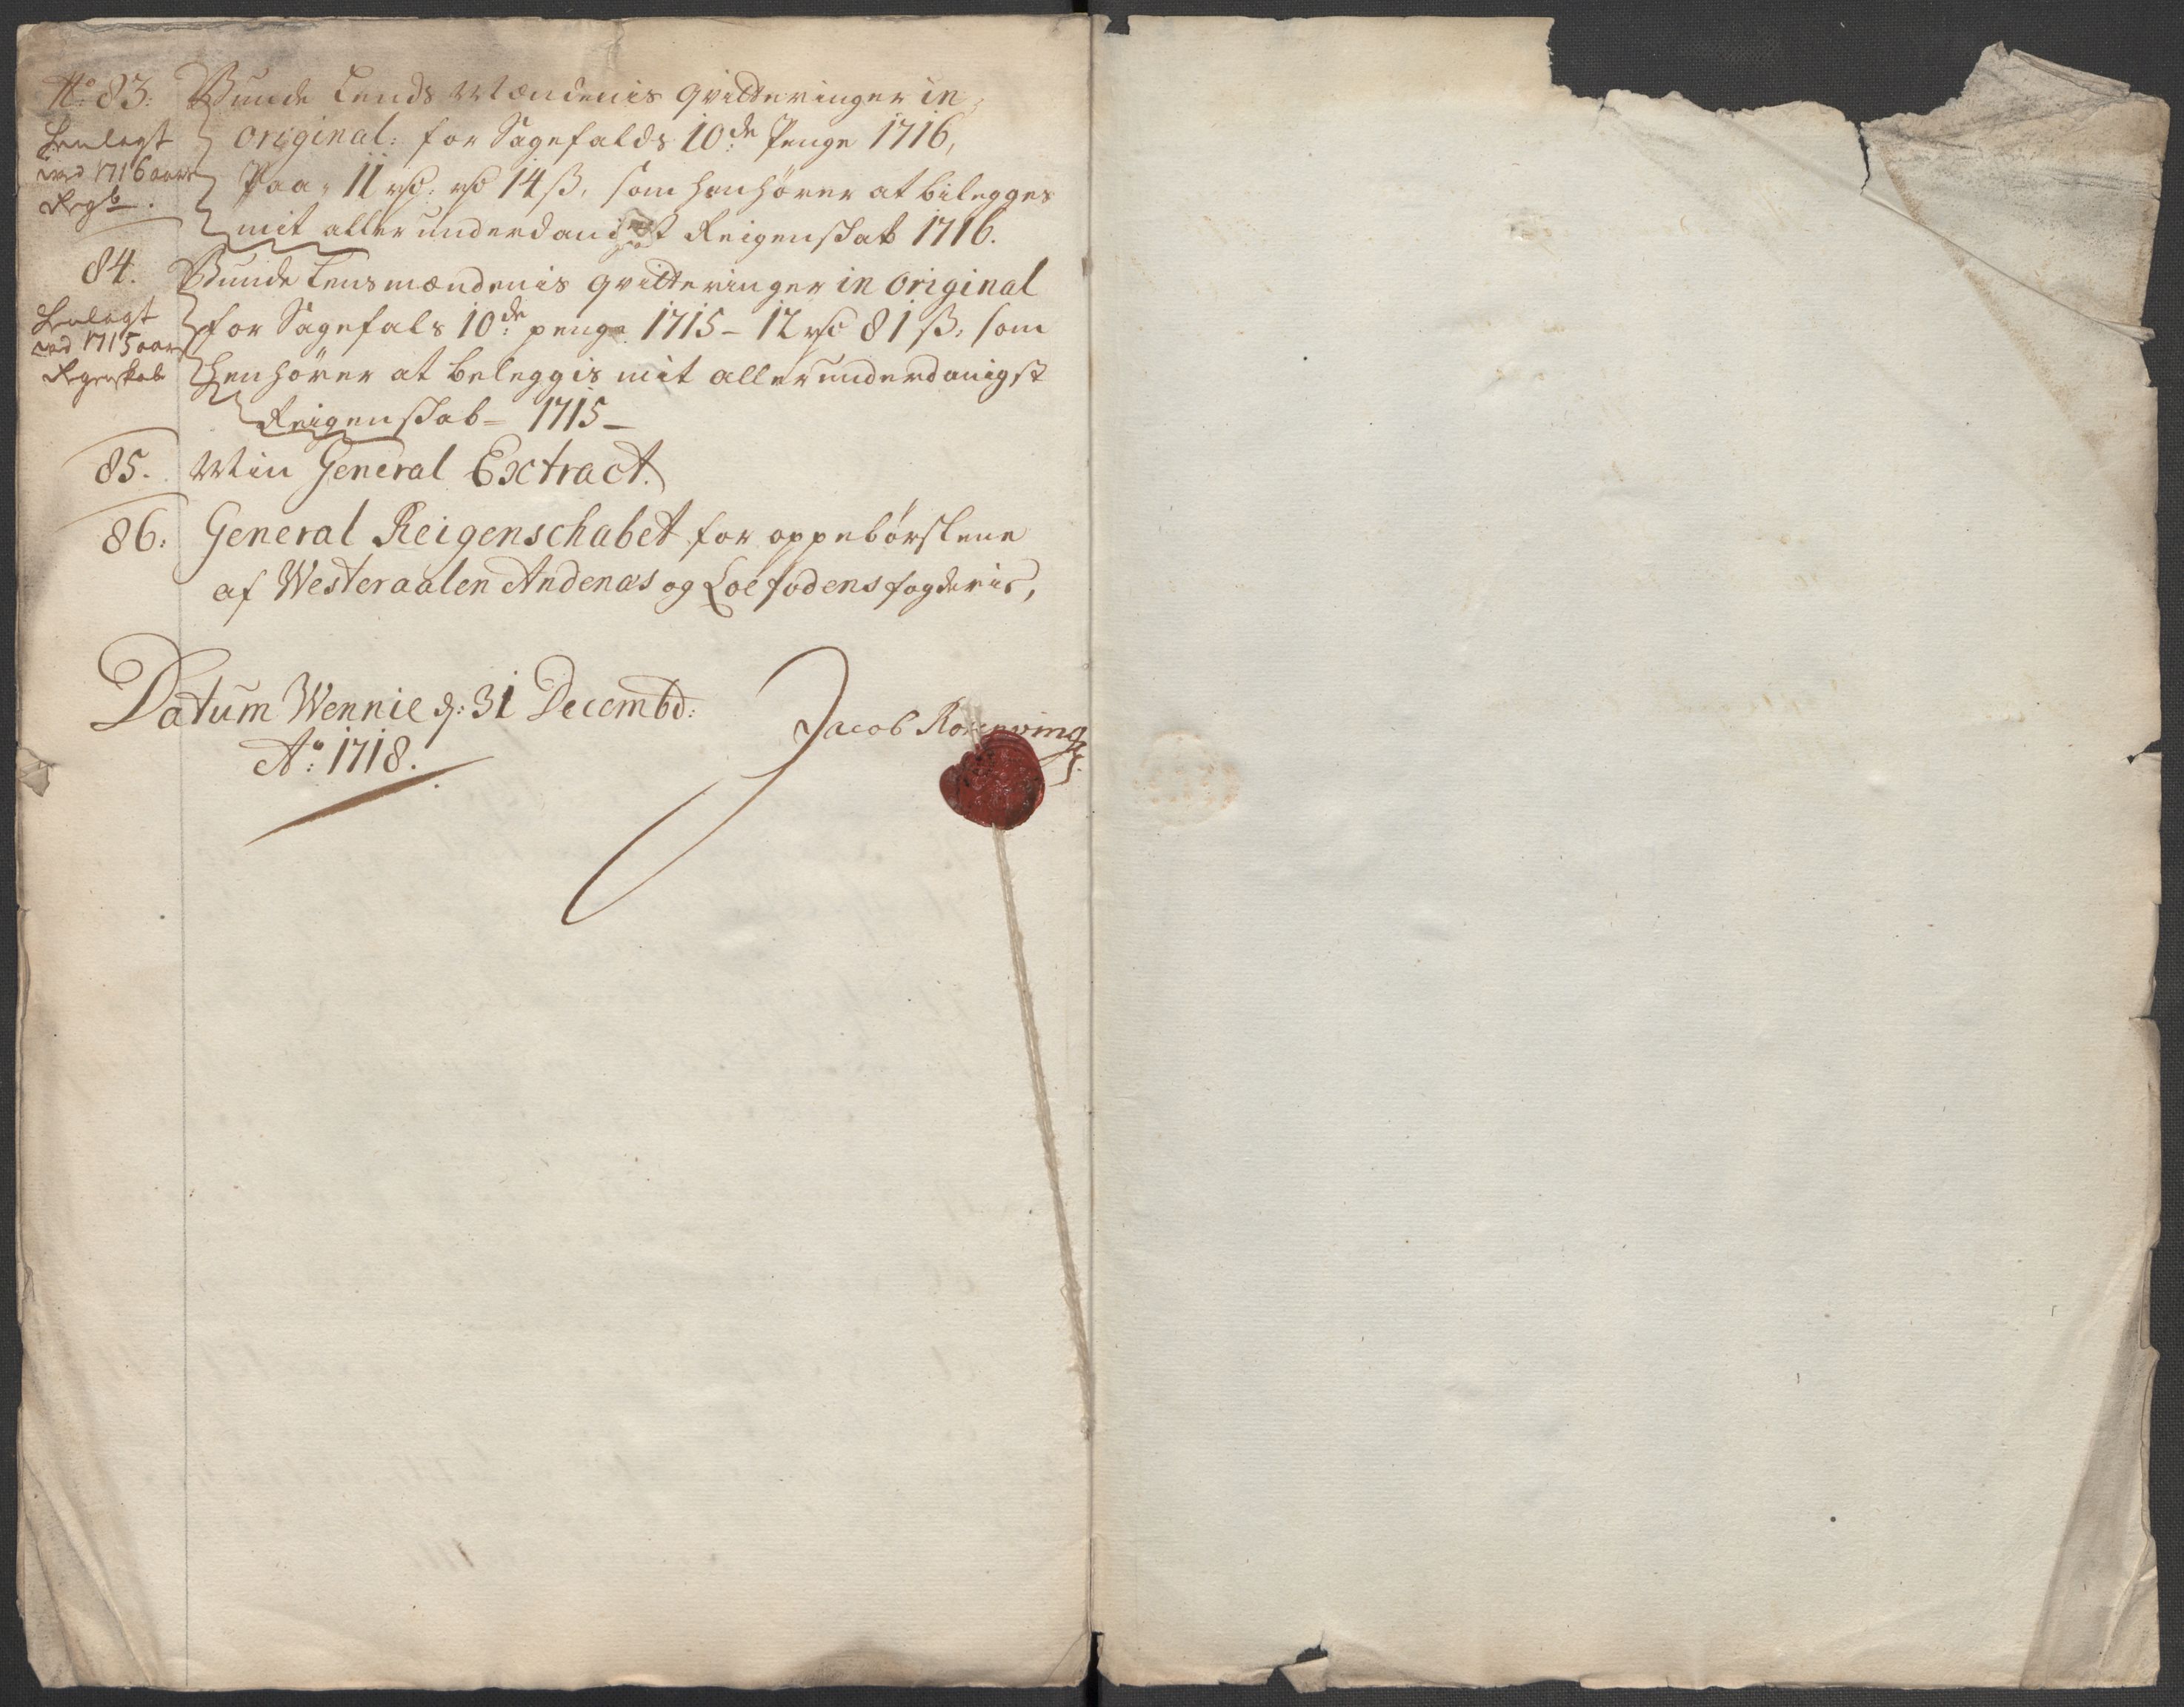 No: 83. Bunde Lends Mændenis qvitteringer in
original: for Sagefalds 10de Penge 1716,
Paa, 11 rd: 14 ß, som henhører at bilegges
mit allerunderdanigst Reigenskab 1716.
Henlagt
ved 1716 aars
Regb.
84. Bunde Lensmændenis qvitteringer in original
for Sagefals 10de penge 1715 – 12 rd 81 ß, som
henhører at beleggis mit allerunderdanigst
Reigenskab – 1715 –
Henlagt
ved 1715 aars
Regenskab
85. Min General Extract.
86. General Reigenschabet for oppebørslene
af Westeraalen Andenæs og Loefodens fogderie,
Datum Wennie d: 31 Decembd:
Ao: 1718.
Jacob Rosenving